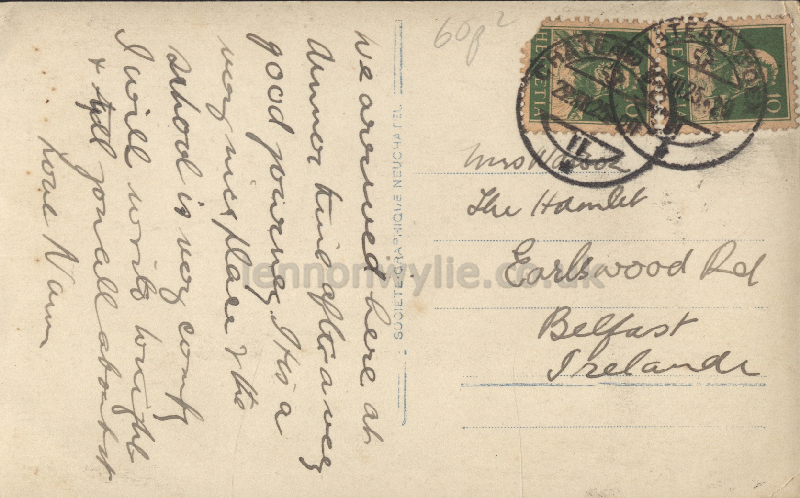 We arrived here at
dinner time after a very
good journey. Its a
very nice place & the
school is very comfy
I will write tonight
& tell you all about it
Love Nan
SOCIETE GRAPHIQUE NEUCHATEL
60p
HELVETIA
10
HELVETIA
10
Mrs
The Hamlet
Earlswood Rd
Belfast
Ireland
lennonwylie.co.uk